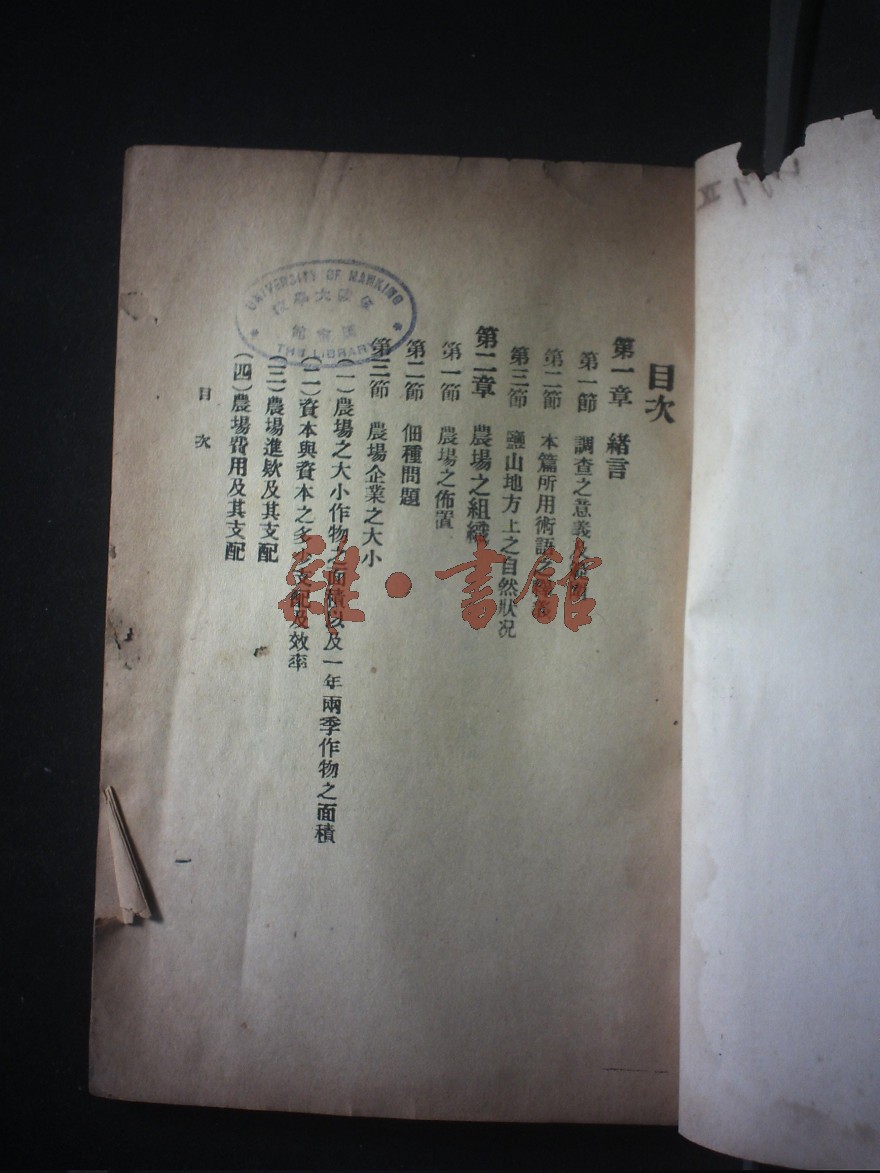 目次
第一章 緒言
第一節 調查之意義及範圍
第二節 本篇所用術語之釋義
第三節 鹽山地方上之自然狀况
第二章 農場之組織
第一節 農場之佈置
第二節 佃種問題
第三節 農場企業之大小
(一)農場之大小作物之面積以及一年兩季作物之面積
(二)資本與資本之多少支配及效率
(三)農場進欵及其支配
(四)農場費用及其支配
目次
一
UNIVERSITY OF NANKING
THE LIBRARY
雜·書館